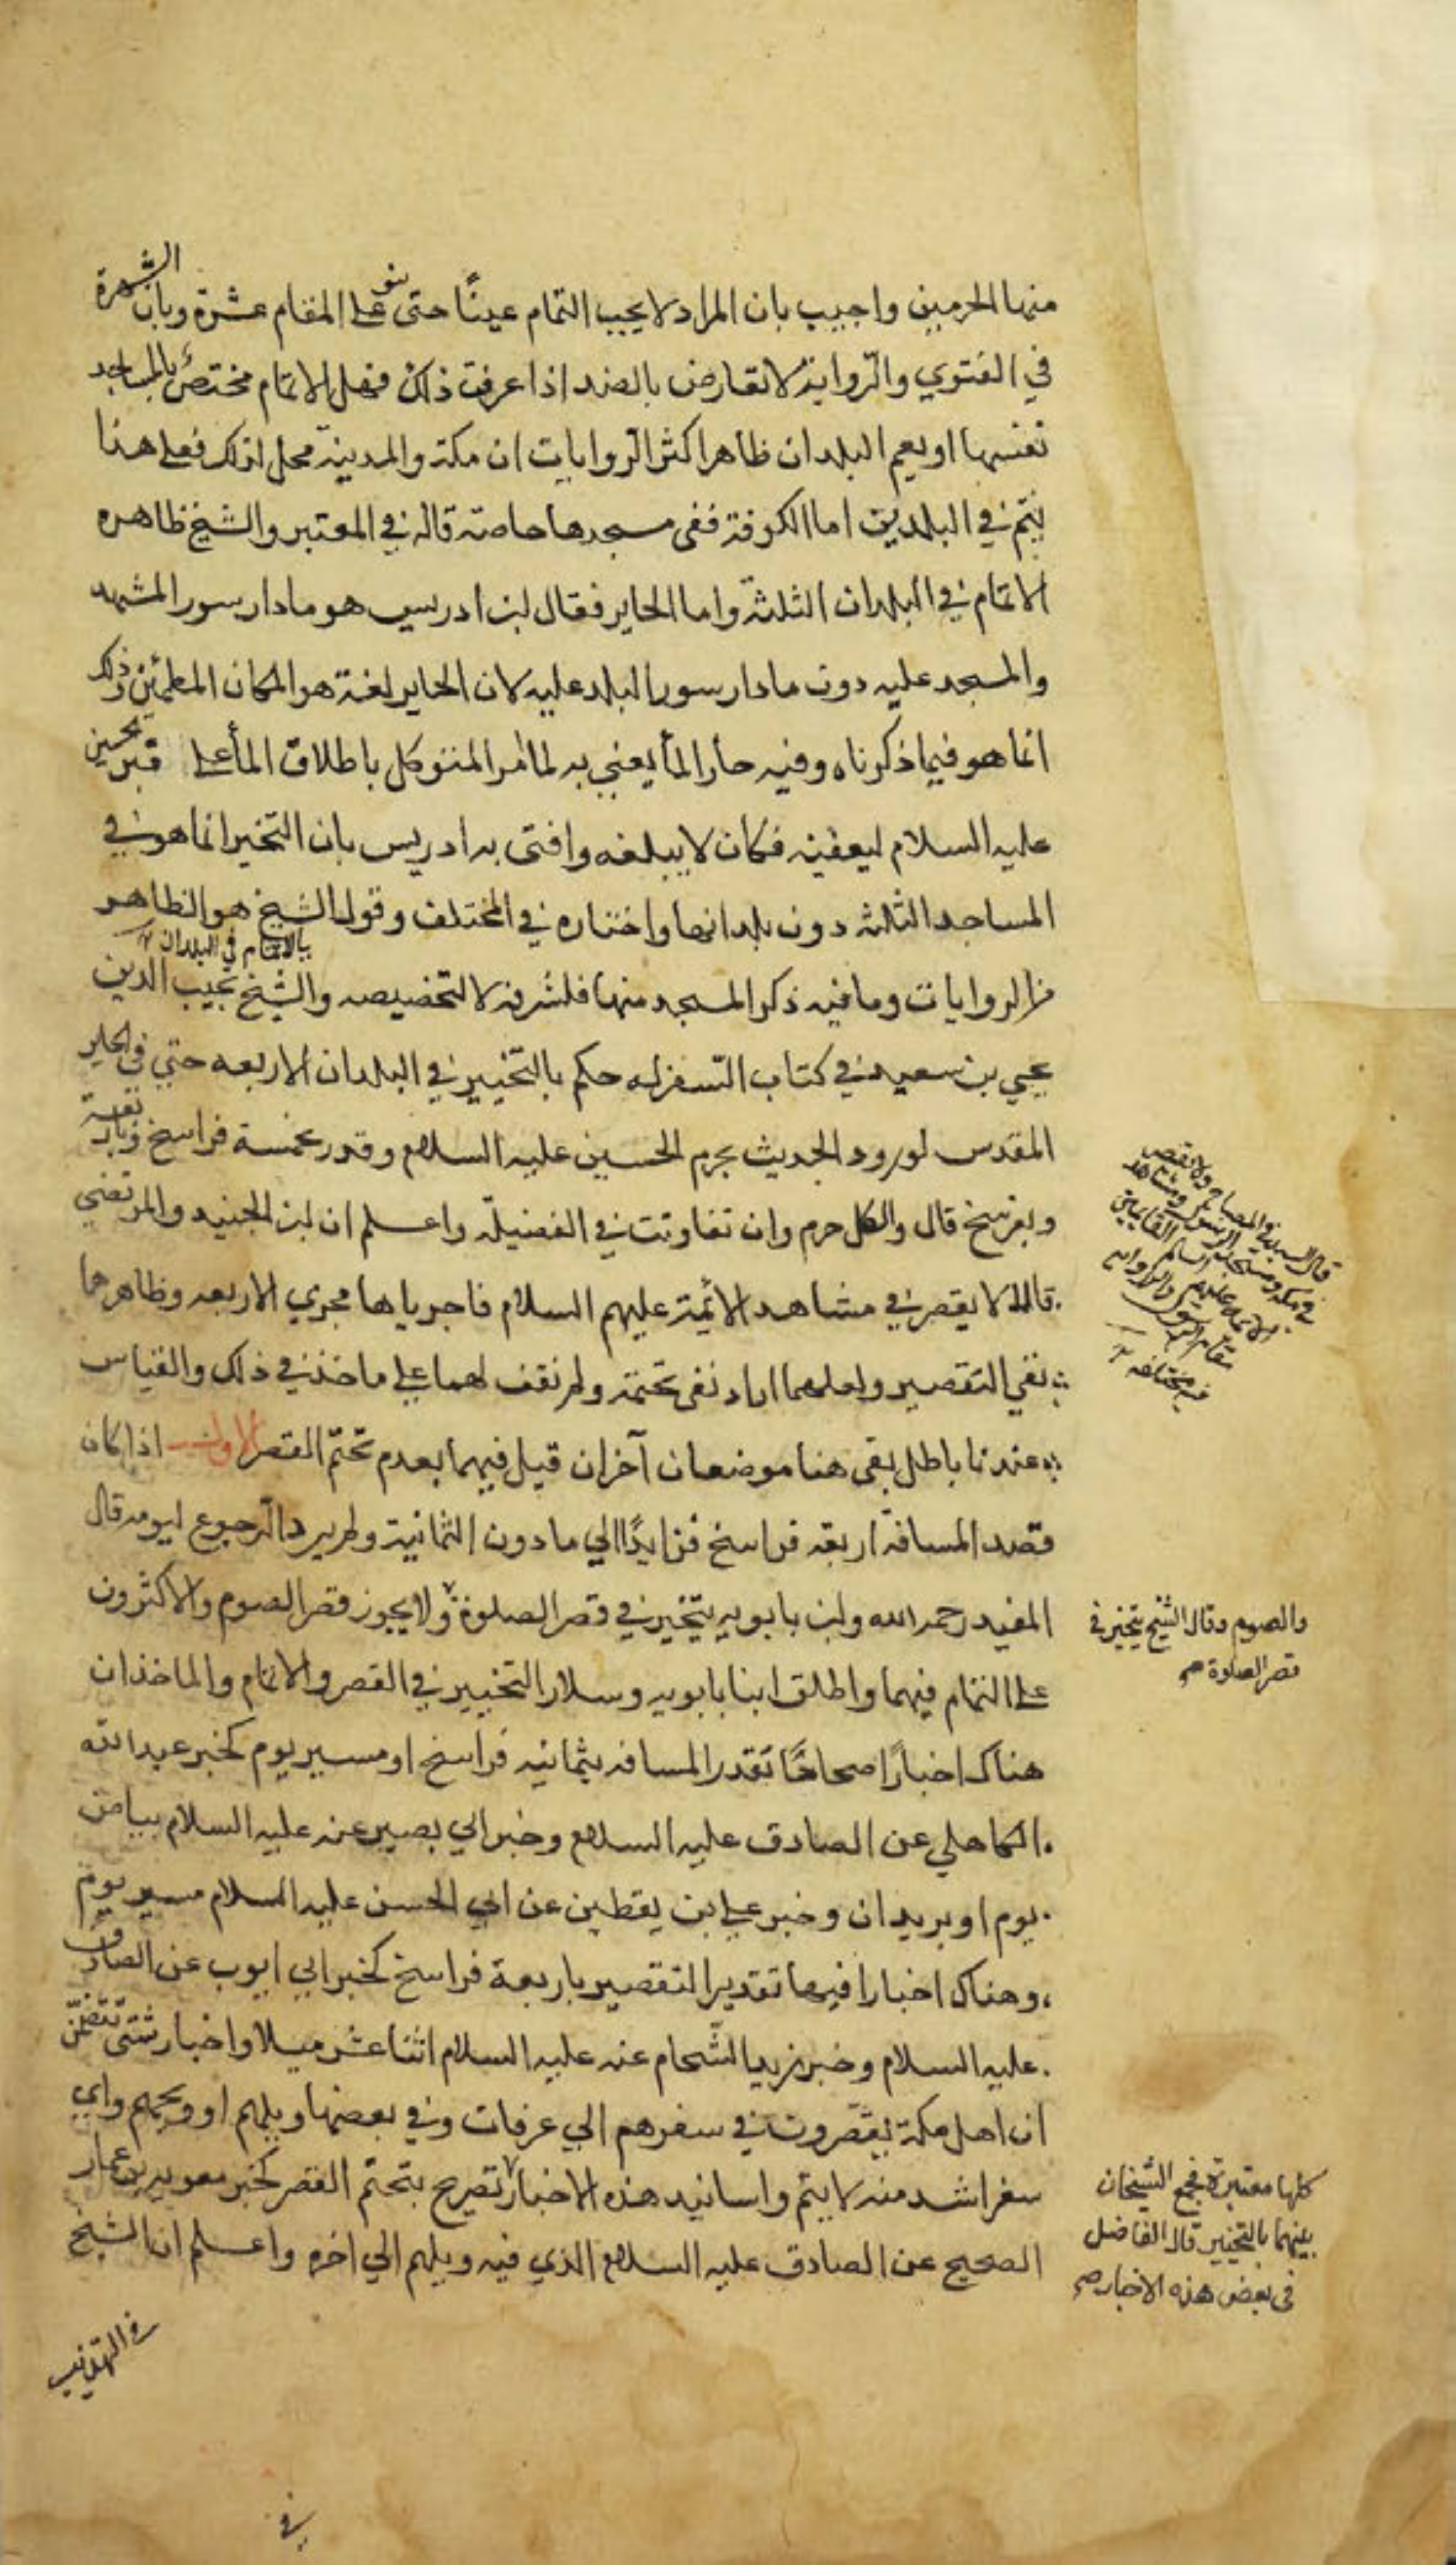 منها الحرمين واجيب بان المراد لا يجب التمام عينًا حتى ينو على المقام عشرة وبان الشهرة
في الفتوي والرّواية لا تعارض بالضد اذا عرفت ذلك فهل الاتمام مختص بالمساجد
نفسها او يعم البلدان ظاهر اكثر الروايات ان مكة والمدينة محل لذلك فعلى هذا
يتم في البلدين اما الكوفة ففي مسجدها خاصة قاله في المعتبر والشيخ ظاهره
الاتمام في البلدان الثلثة واما الحاير فقال ابن ادريس هو ما دار سور المشهد
والمسجد عليه دون ما دار سور البلد عليه لان الحاير لغة هو المكان المطمئن وذلك
انما هو فيما ذكرناه وفيه حار الماء يعني به لما امر المتوكل باطلاق الماء على قبر الحسين
عليه السلام ليعفيه فكان لا يبلغه وافتى به ادريس بان التخير انما هو في
المساجد الثلثه دون بلدانها واختاره في المختلف وقول الشيخ هو الظاهر
بالاتمام في البلدان
من الروايات وما فيه ذكر المسجد منها فلشرفه لا لتخصيصه والشيخ نجيب الدين
يحيي بن سعيد في كتاب السفر له حكم بالتخيير في البلدان الاربعه حتي في الحاير
المقدس لورود الحديث بحرم الحسين عليه السلام وقدر بخمسة فراسخ وباربعة
وبفرسخ قال والكل حرم وان تفاوتت في الفضيلة واعلم ان ابن الجنيد والمرتضي
قالا لا يقصر في مشاهد الائمة عليهم السلام فاجرياها مجري الاربعه وظاهرهما
نفي التقصير ولعلهما ارادا نفي تحتمه ولم نقف لهما على ماخذ في ذلك والقياس
عندنا باطل بقي هنا موضعان آخران قيل فيهما بعدم تحتّم القصر الاول اذا كان
قصد المسافة اربعة فراسخ فزايدًا الي ما دون الثمانية ولم يرد الرجوع ليومه قال
المفيد رحمه الله وابن بابويه يتخير في قصر الصلوة ولا يجوز قصر الصوم والاكثرون
على التمام فيهما واطلق ابنا بابويه وسلار التخيير في القصر والاتمام والماخذ ان
هناك اخبارًا صحاحًا تقدر المسافه بثمانيه فراسخ او مسير يوم كخبر عبد الله
الكاهلي عن الصادق عليه السلام وخبر ابي بصير عنه عليه السلام بياض
يوم او بريدان وخبر علي بن يقطين عن ابي الحسن عليه السلام مسير يوم
وهناك اخبارا فيها تقدير التقصير باربعة فراسخ كخبر ابي ايوب عن الصادق
عليه السلام وخبر زيد الشّحام عنه عليه السلام اثنا عشر ميلا واخبار شتى تتضمن
ان اهل مكة يقصرون في سفرهم الي عرفات وفي بعضها ويلهم او ويحهم واي
سفر اشد منه لا يتم واسانيد هذه الاخبار تصريح بتحتّم القصر كخبر معويه بن عمار
الصحيح عن الصادق عليه السلام الذي فيه ويلهم الي اخره واعلم ان الشيخ
في التهذيب
قال السيد في المصباح ولا تقصر
في مكة ومسجد الرسول ومشاهد
الائمة عليهم السلم القايمين
مقام الرسول والرواية
فيه مختلفه
والصوم وقال الشيخ يتخير في
قصر الصلوة
كلها معتبرة فجمع الشيخان
بينهما بالتخيير قال الفاضل
في بعض هذه الاخبار
في